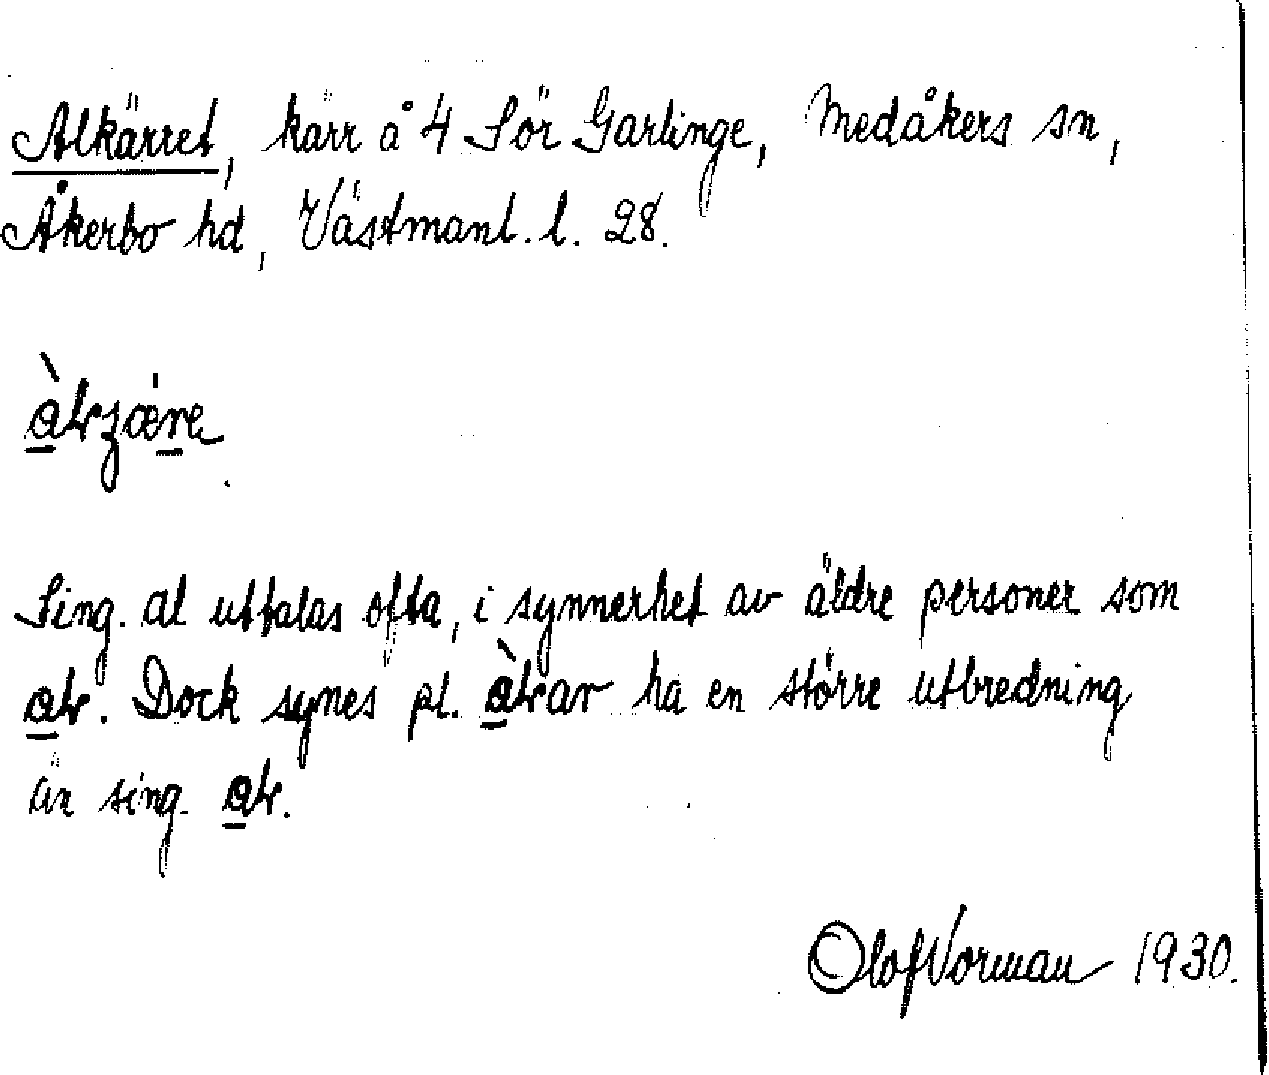 Alkärret, kärr å 4 Sör Garlinge, Medåkers sn,
Åkerbo hd, Västmanl. l. 28.
Sing. al uttalas ofta, i synnerhet av äldre personer som
Dock synes pl. ha en större utbredning
än sing.
Olof Norman 1930.